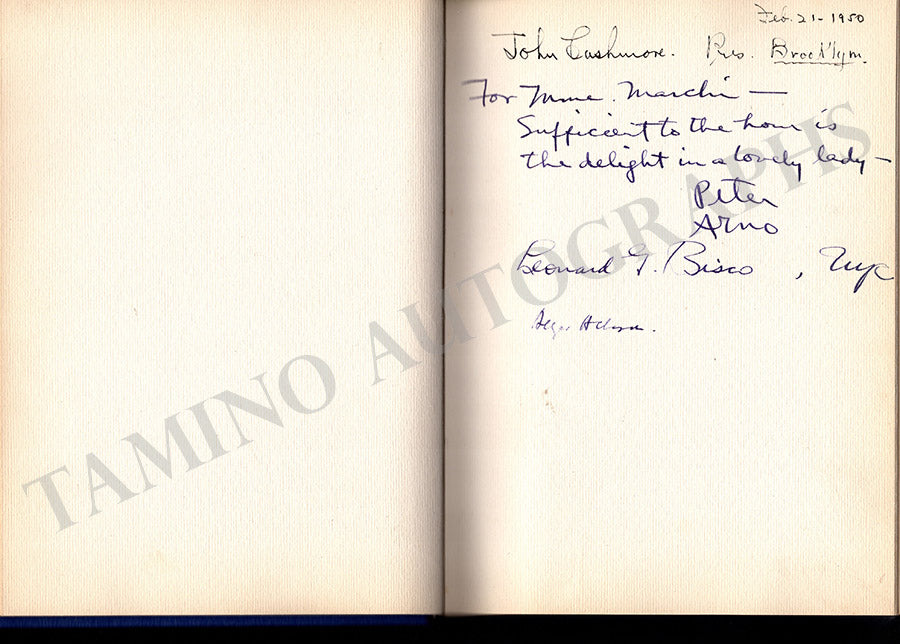 Feb. 21 - 1950
John Cashmore. Pres. Brooklyn.
For Mme. Marchi —
Sufficient to the hour is
the delight in a lovely lady —
Peter
Arno
Leonard G. Bisco , NYC
TAMINO AUTOGRAPHS